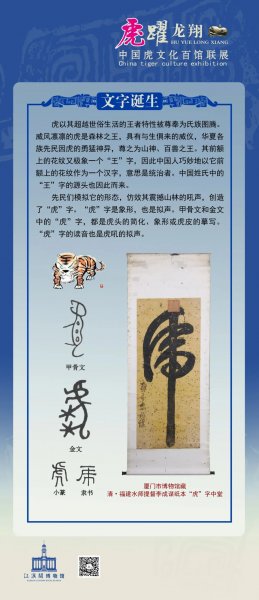 虎躍 龙翔
HU YUE LONG XIANG
中国虎文化百馆联展
China tiger culture exhibition
文字诞生
虎以其超越世俗生活的王者特性被尊奉为氏族图腾。
威风凛凛的虎是森林之王，具有与生俱来的威仪，华夏各
族先民因虎的勇猛神异，尊之为山神、百兽之王。其前额
上的花纹又极象一个“王”字，因此中国人巧妙地以它前
额上的花纹作为一个汉字，意思是统治者。中国姓氏中的
“王”字的源头也因此而来。
先民们模拟它的形态，仿效其震撼山林的吼声，创造
了“虎”字。“虎”字是象形，也是拟声。甲骨文和金文
中的“虎”字，都是虎头的简化，象形或虎皮的摹写。
“虎”字的读音也是虎吼的拟声。
甲骨文
金文
小篆
隶书
虎
厦门市博物馆藏
清·福建水师提督李成谋纸本“虎”字中堂
江汉关博物馆